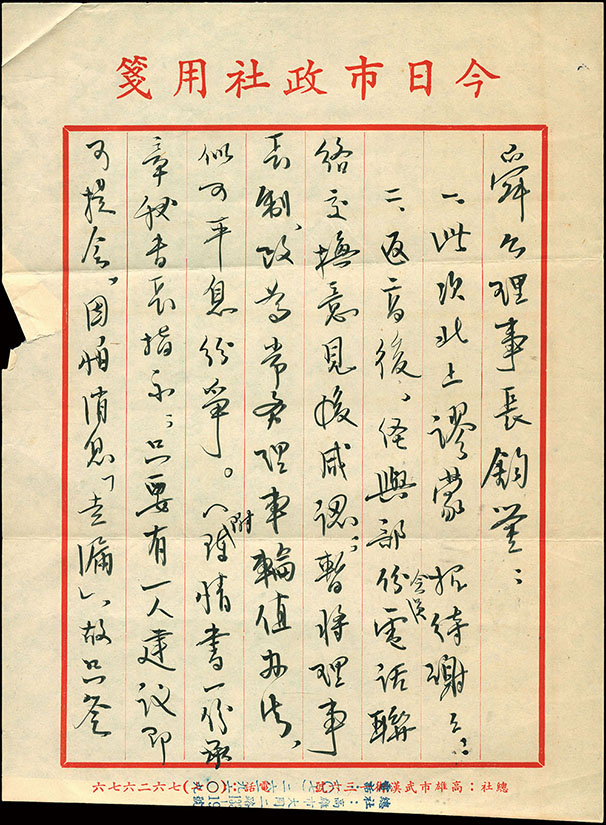 今日市政社用箋
舜公理事長鈞鑒：
一、此次北上謬蒙 招待謝謝：
二、返高後，經與部份會員電話聯
絡交換意見後咸認：暫將理事
長制、改為常務理事輪值办法、
似可平息份爭。（附陳情書一份
章秘書長指示：只要有一人建议即
可提会，因怕消息「走漏」故只签
總社：高雄市武漢街三六號 電話：